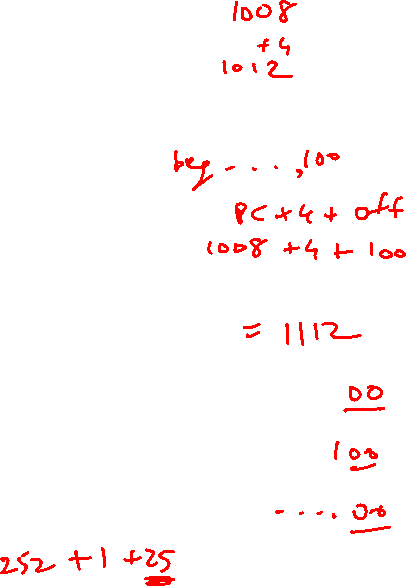 1008
+4
1012
beq ....,100
PC+4+off
1008+4+100
= 1112
00
100
....00
252 +1 +25